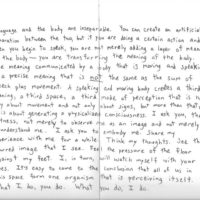 language and the body are inseparable. You can create an artificial
separation between the two, but if you are doing a certain action and
then you begin to speak, you are not merely adding a layer of meaning
to the body — you are transforming the meaning of the body.
The meaning communicated by a body that is moving and speaking
a precise meaning that is not the same as the sum of
speech plus movement. A speaking and moving body creates a third
a third space, a third mode of perception that is not
about movement and not only about signs, but more than that,
is about generating a physicalized consciousness. I ask you, the
witness, not merely to observe me as an image and not merely to
understand me. I ask you to embody me. Share my
experience with me for a while. Think my thoughts. See the
blurred image that I see. Feel the pressure of the floor
against my feet. I, in turn, will watch myself with your
eyes. It's easy to come to the conclusion that all of us in
this space form one organism that is perceiving itself.
What I do, you do. What you do, I do.